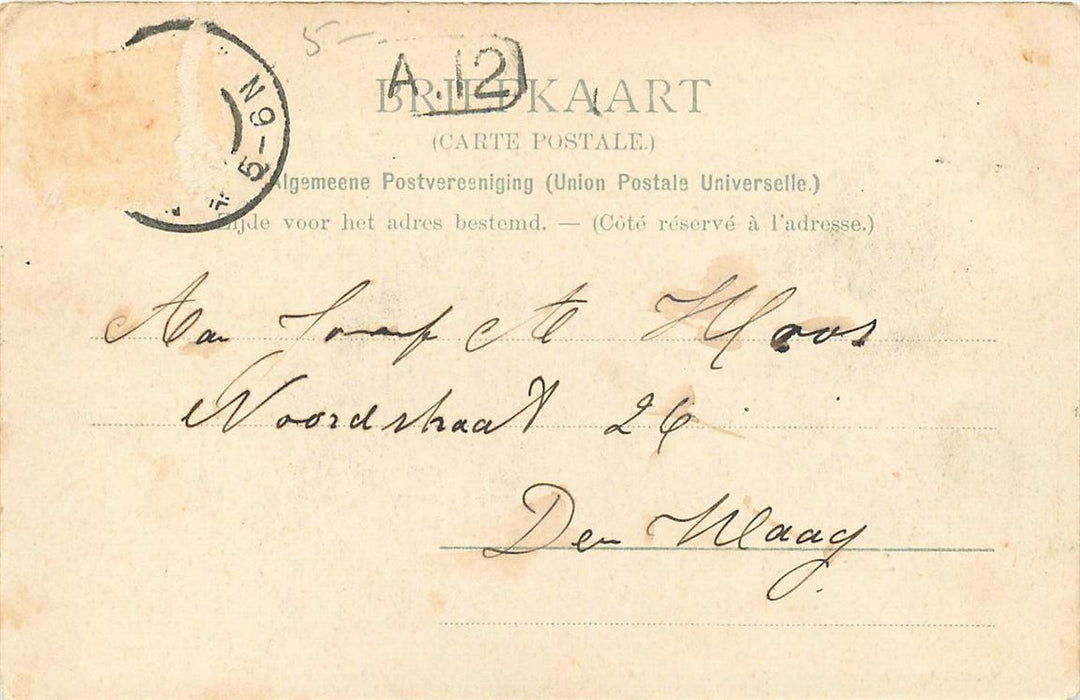 5-
A.12
N 9
5-
BRIEFKAART
(CARTE POSTALE.)
Algemeene Postvereeniging (Union Postale Universelle.)
Zijde voor het adres bestemd. — (Côté réservé à l'adresse.)
Aan
Noordstraat 26
Den Haag